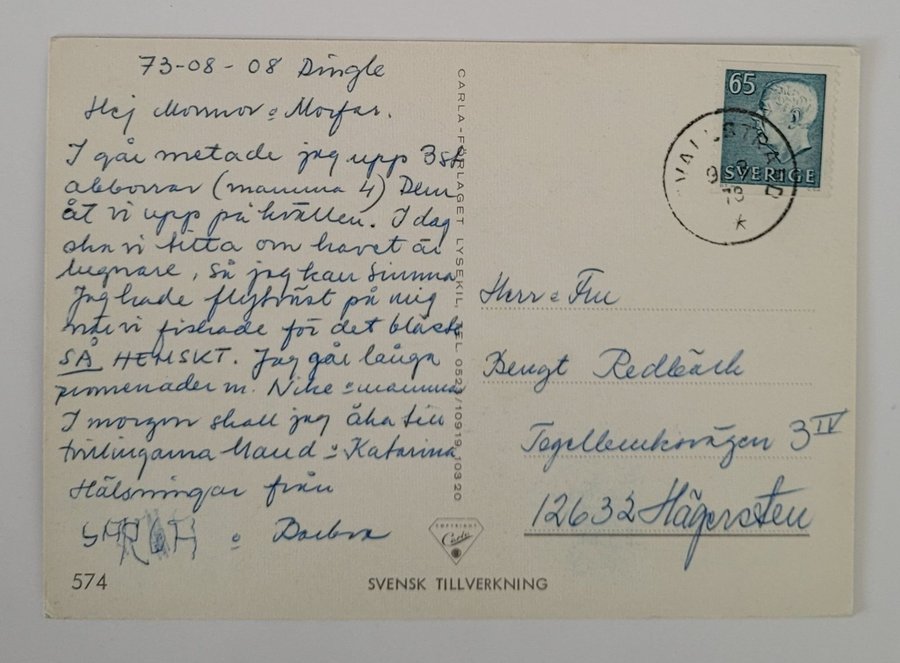 73-08-08 Dingle
Hej Mormor o Morfar.
I går metade jag upp 3 st
abborrar (mamma 4) Dem
åt vi upp på kvällen. I dag
ska vi titta om havet är
lugnare, så jag kan simma
Jag hade flytväst på mig
när vi fiskade för det blåste
SÅ HEMSKT. Jag går långa
promenader m. Nike o mamma
I morgon skall jag åka till
tvillingarna Maud o Katarina
Hälsningar från
o Barbro
574
SVENSK TILLVERKNING
CARLA-FÖRLAGET LYSEKIL, TEL 0523/10919, 10320
COPYRIGHT
Carla
65
SVERIGE
9 8
73
Herr o Fru
Bengt Redbäck
Tegelbruksvägen 3 IV
12632 Hägersten